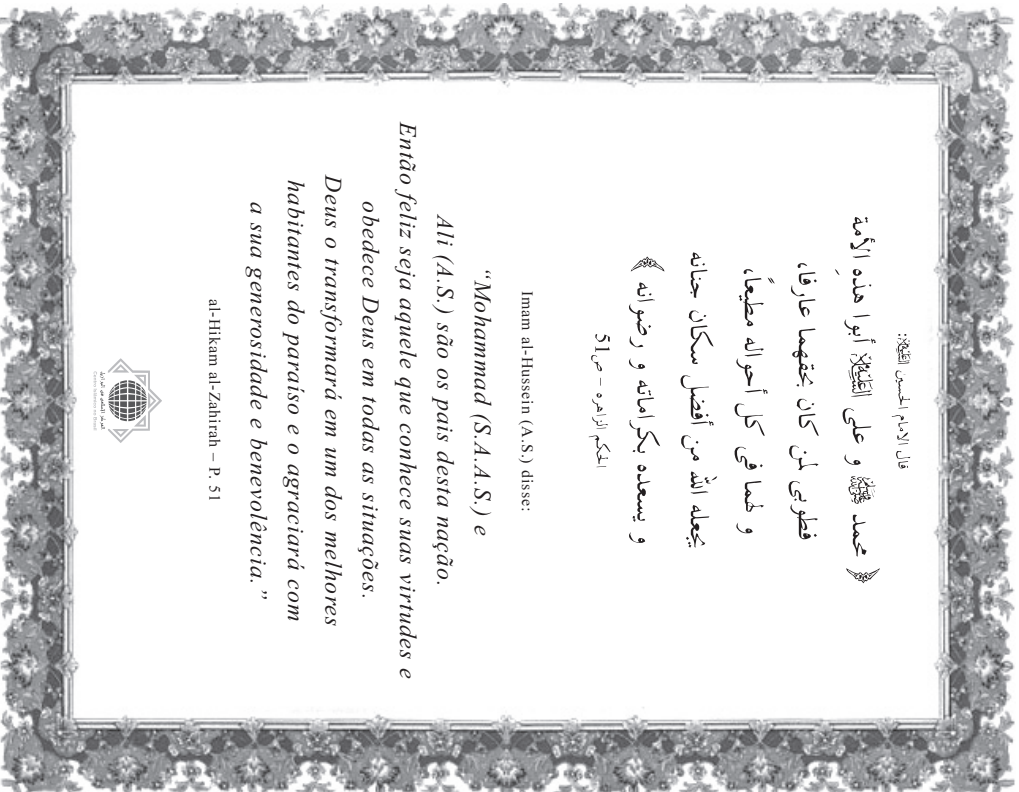 قال الامام الحسين :
﴿ محمد ﷺ و علی أبوا هذِهِ الأمة
فطوبی لمن کان بحقهما عارفا،
و لهما فی کل أحواله مطیعاً،
یجعله الله من أفضل سکان جنانه
و یسعده بکراماته و رضوانه ﴾
الحکم الزاهره – ص51
Imam al-Hussein (A.S.) disse:
“Mohammad (S.A.A.S.) e
Ali (A.S.) são os pais desta nação.
Então feliz seja aquele que conhece suas virtudes e
obedece Deus em todas as situações.
Deus o transformará em um dos melhores
habitantes do paraíso e o agraciará com
a sua generosidade e benevolência.”
al-Hikam al-Zahirah – P. 51
Centro Islâmico no Brasil